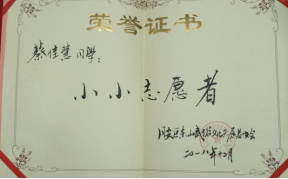 荣誉证书
蔡佳慧同学：
小小志愿者
二〇一八年十月